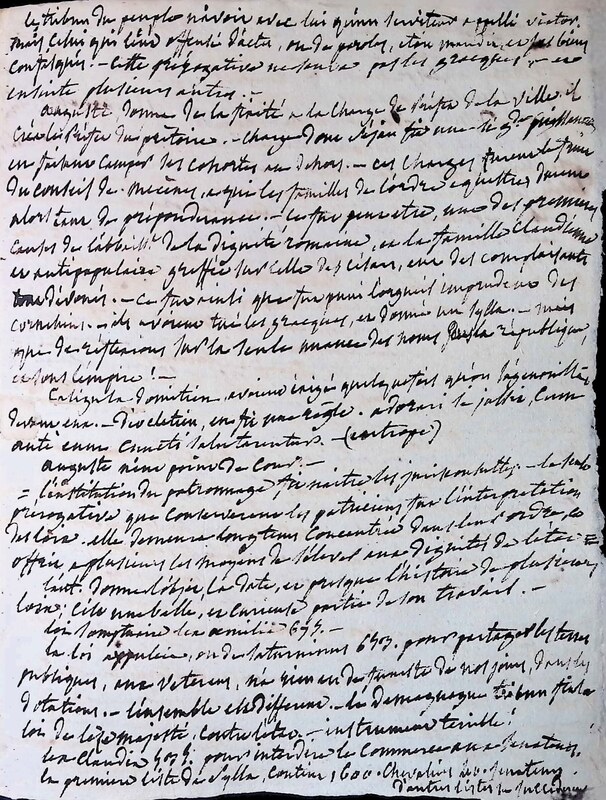 le tribun du peuple n'avoit avec lui qu'un serviteur appellé viator.
mais celui qui l'eut offensé d'actes, ou de paroles, étou maudit, et ses biens
confisqués. – cette prérogative ne sauva pas les gracques – et
ensuite plusieurs autres. –
auguste, donna de la fixité a la charge de préfet de la ville. il
créa les préfets du prétoire. – charge dont séjan
en faisant camper les cohortes au dehors. – ces charges furent le fruit
du conseil de mécènes, et que les familles de l'ordre equestre durent
alors tant de prépondérance. – ce fut peut etre, une des premières
causes de l'abbaissé de la dignité romaine, et la famille claudienne
et antipopulaire greffée sur celle des césars, eut des complaisants
dévoués. – ce fut ainsi que fut puni l'orgueil imprudent des
cornéliens. – ils avoient tué les gracques, et donné un sylla. – mais
que de réflexions sur la seule nuance des noms, sous la république,
et sous l'empire ! –
Caligula domitien, avoient exigé quelquefois qu'on s'agenouillât
devant eux. – dioclétien, en fit une règle. adorari se jussit, cum
ante eum cuncti salutarentur. – (eutrope)
auguste n'eut point de cour. –
= l'institution du patronnage fit naitre les jurisconsultes. – la seule
prérogative que conservèrent les patriciens fut l'interprétation
des loix. elle demeura longtems concentrée dans leur ordre, et
offrit a plusieurs les moyens de s'élever aux dignités de l'état =
l'aut. donne l'objet, la date, et presque l'histoire de plusieurs
loix; c'est une belle, et curieuse partie de son travail. –
loi somptuaire lex aemilia 675. –
la loi appuleia, ou de saturninus 653. pour partager les terres
publiques, aux vétérans, n'a rien eu de funeste de nos jours, dans les
dotations. – l'ensemble est différent. – le démagogue tribun fit la
loi de lèze majesté, contre l'état. – instrument terrible !
lex Claudia 535. pour interdire le commerce aux sénateurs.
la première liste de sylla, contint 1600. chevaliers sénateurs.
d'autres listes succédèrent